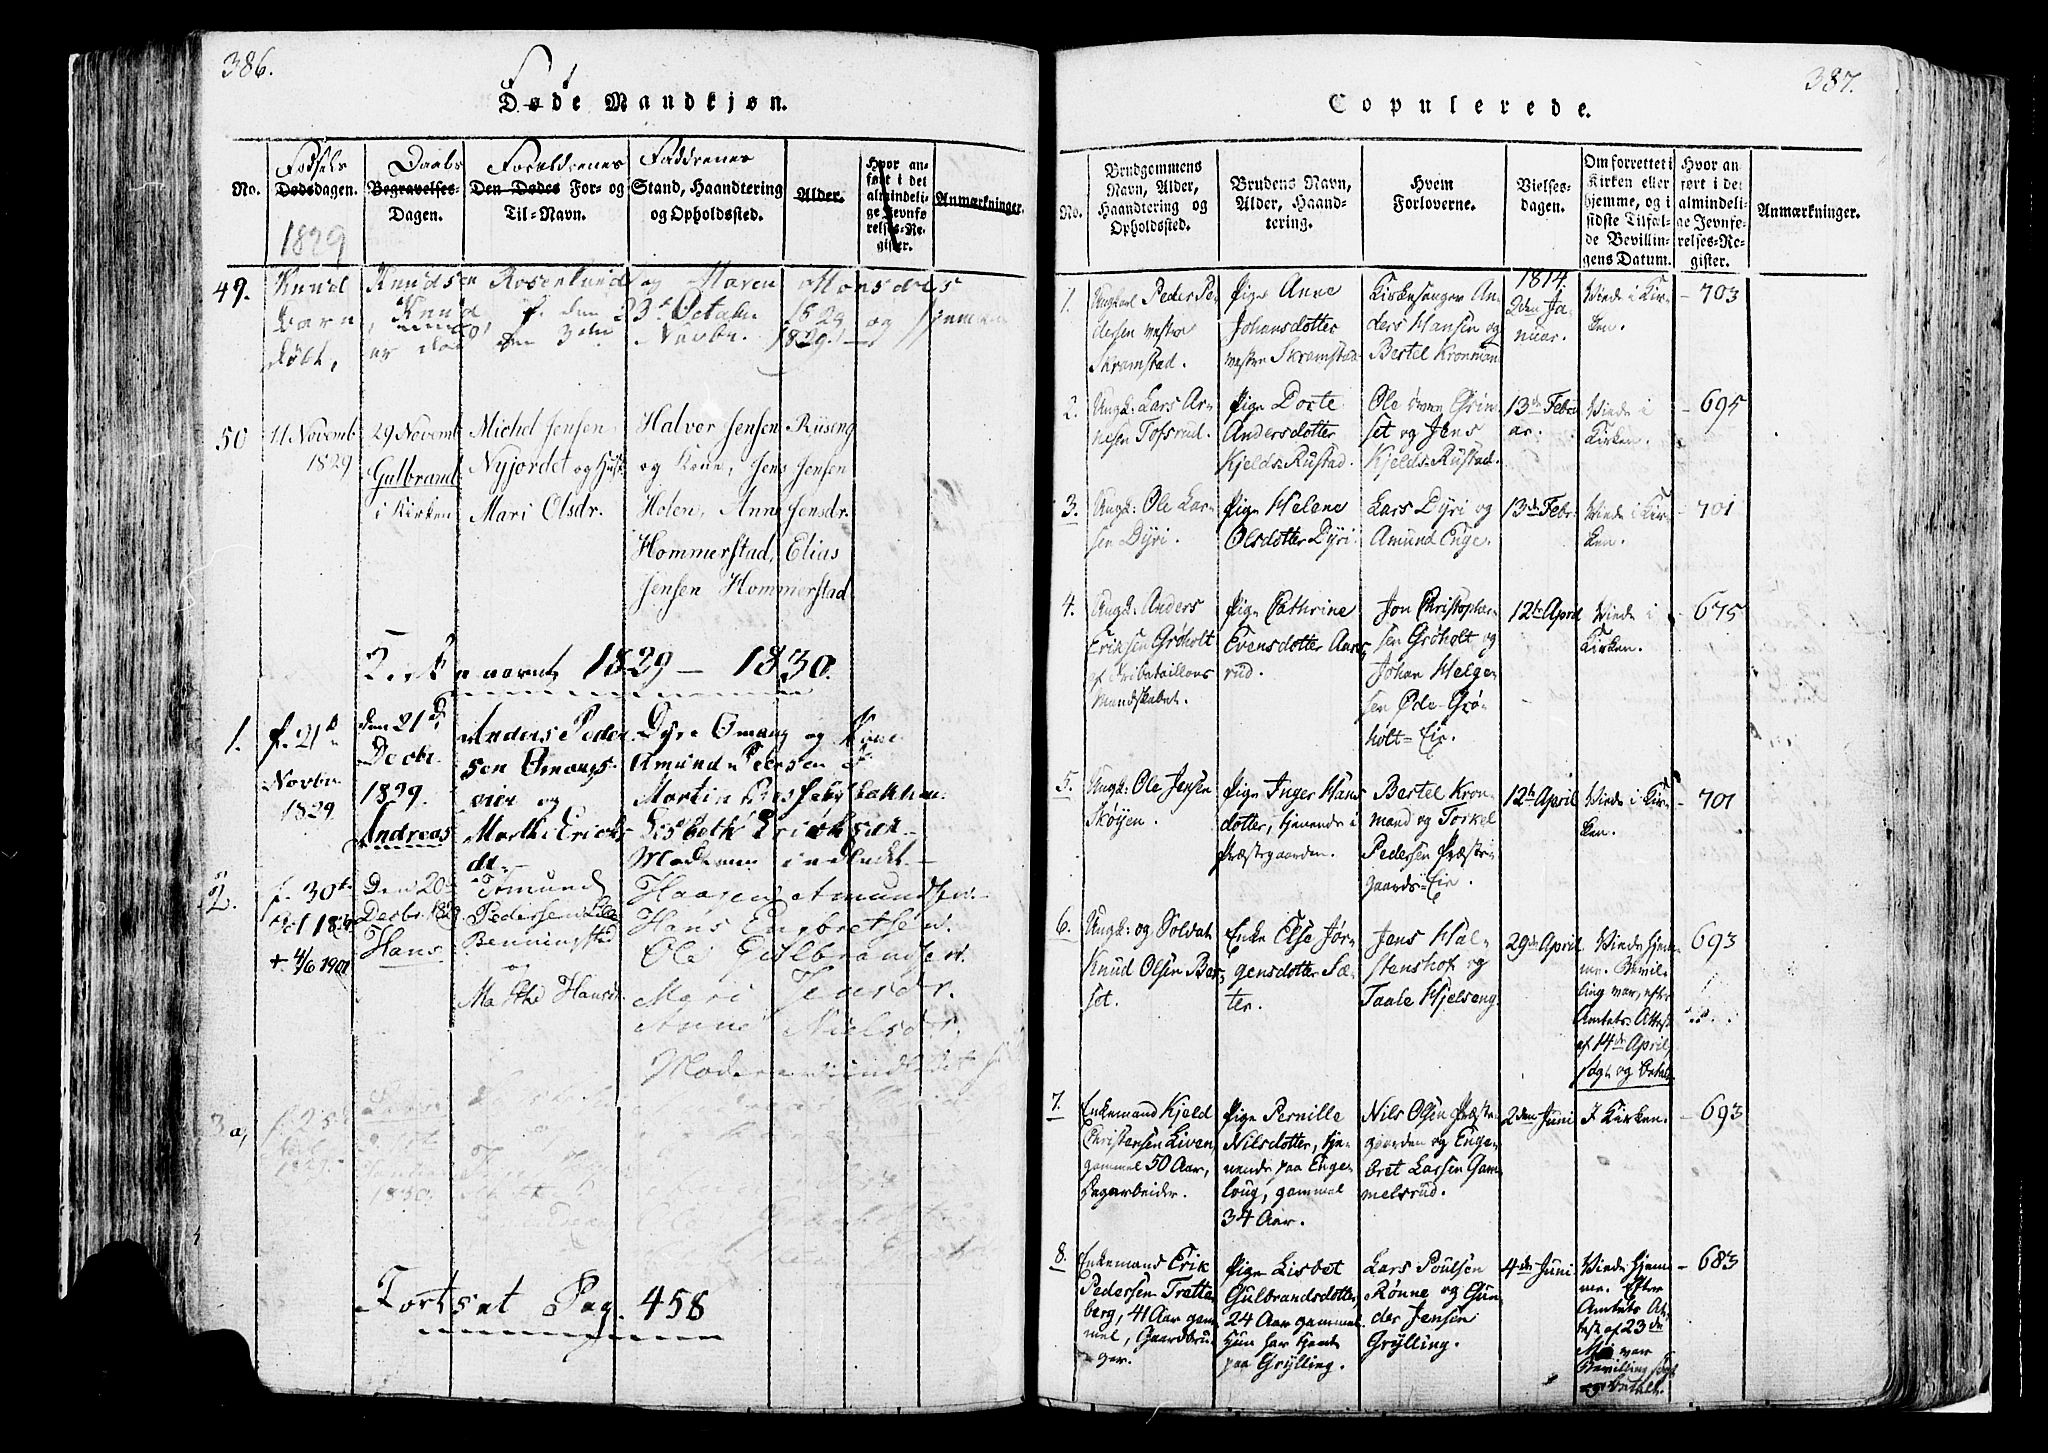 386.
Døde Mandkjøn.
No.
Fødsels
Dødsdagen.
Daabs
Begravelses-
Dagen.
Forældrenes
Den Dødes For- og
Til-Navn.
Faddrenes
Stand, Haandtering
og Opholdssted.
Alder.
Hvor an-
ført i det
almindeli-
ge Jevnfø-
relses-Re-
gister.
Anmærkninger.
1829
49.
Knud Knudsen Rosenlund og Maren Monsdr
Barn, Knud, f. den 23de Octobr 1829 og
døbt, er død den 3die Novbr. 1829.
50
11 Novemb
1829
29 Novemb
Gulbrand
i Kirken
Michel Jensen
Nyjordet og Hust
Mari Olsdr.
Halvor Jensen Ruseng
og Kone, Jens Jensen
Holen, Anne Jensdr.
Hommerstad, Elias
Jensen Hommerstad
Kirkeaaret 1829 - 1830.
1.
f. 21de
Novbr
1829
den 21de
Decbr.
1829.
Andreas
Anders Peder
sen Omangs
eier og
Marthe Erichs
dr.
Dyre Omang og Kone
Amund Pedersen
Martin
Lisbeth Erichsdr
Moderen indledet
2.
f. 30te
Oct 1829
+ 4/6 1901
Den 20de
Decbr. 1829
Hans
Tomund
Pedersen
Benningstad
og
Marthe Hansdr.
Haagen Amundsen.
Hans Engbretsen.
Ole Gulbrandsen.
Mari Jensdr.
Anne Nielsdr.
Moderen indledet
3 a,
f. 25de
1829
1830.
Ole
Fortsat Pag. 458
387.
Copulerede.
No.
Brudgommens
Navn, Alder,
Haandtering og
Opholdssted.
Brudens Navn,
Alder, Haand-
tering.
Hvem
Forloverne.
Vielses-
dagen.
Om forrettet i
Kirken eller
hjemme, og i
sidste Tilfæl-
de Bevillin-
gens Datum.
Hvor an
ført i det
almindeli-
ge Jevnfø-
relses-Re-
gister.
Anmærkninger.
1814.
1.
Ungkarl Peder Pe-
dersen vestre
Skramstad.
Pige Anne
Johansdotter
vestre Skramstad
Kirkesanger An-
ders Hansen og
Bertel Kronman
2den Ja-
nuar.
Viede i Kir-
ken.
- 703
2.
Ungk: Lars Ar-
nesen Tofsrud.
Pige Dorte
Andersdotter
Kjelds-Rustad.
Ole øvre Grin-
set og Jens
Kjelds-Rustad.
13de Febru
ar.
Viede i
Kirken.
- 695
3.
Ungk: Ole Lar-
sen Dyri.
Pige Helene
Olsdotter Dyri.
Lars Dyri og
Amund Enge.
13de Febr:
Viede i Kir-
ken.
- 701
4.
Ungk: Anders
Eriksen Grøholt
af Fribataillons
Mandskabet.
Pige Cathrine
Evensdotter Aas-
rud.
Jon Christopher-
sen Grøholt og
Johan Helge-
sen Øde-Grø-
holt-Eie.
12te April
Viede i
Kirken.
- 675
5.
Ungk: Ole Jensen
Skøyen.
Pige Inger Hans
dotter, tjenende i
Præstegaarden.
Bertel Kron-
mand og Torkel
Pedersen Præste-
gaards-Eie.
12te April
Viede i Kir-
ken.
- 701
6.
Ungk: og Soldat
Knud Olsen Bas-
set.
Enke Else Jør-
gensdotter Sæ-
ter.
Jens Hal-
stenshof og
Taale Hjelseng.
29de April
Viede hjem-
me. Bevil-
ling var, efter
Amtets Attest
af 14de April,
søgt og betalt.
- 693
7.
Enkemand Kjeld
Christensen Liven
gammel 50 Aar,
Dagarbeider.
Pige Pernille
Nilsdotter, tje-
nende paa Enge-
loug, gammel
34 Aar.
Nils Olsen Præste-
gaarden og Enge-
bret Larsen Gam-
melsrud.
2den Juni
I Kirken.
- 693
8.
Enkemand Erik
Pedersen Trette-
berg, 41 Aar gam-
mel, Gaardbru-
ger.
Pige Lisbet
Gulbrandsdotter,
24 Aar gammel.
Hun har tjent
paa Grylling.
Lars Poulsen
Rønne og Gun-
der Jensen
Grylling.
4de Juni
Viede hjem-
me. Efter
Amtets At-
test af 23de
Mai var
Bevilling søgt
og betalt.
- 683